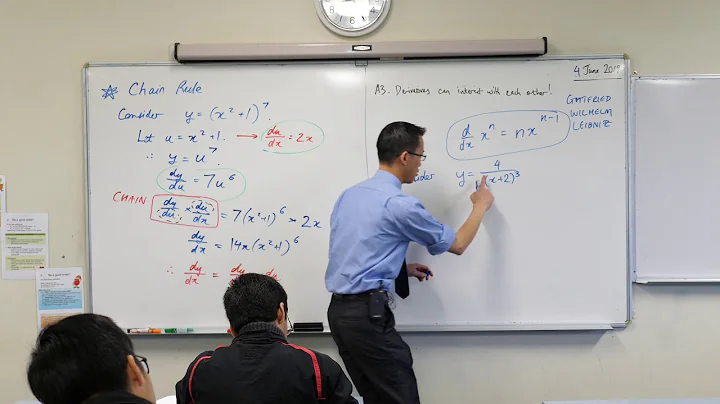 Chain Rule
Consider y = (x²+1)⁷.
Let u = x²+1. → du/dx = 2x
∴ y = u⁷
dy/du = 7u⁶
CHAIN dy/du × du/dx = 7(x²+1)⁶ × 2x
dy/dx = 14x(x²+1)⁶
∴ dy/dx = dy
4 June 2019
A3. Derivatives can interact with each other!
GOTTFRIED
WILHELM
LEIBNIZ
d/dx xⁿ = nxⁿ⁻¹
y = 4
(x+2)³